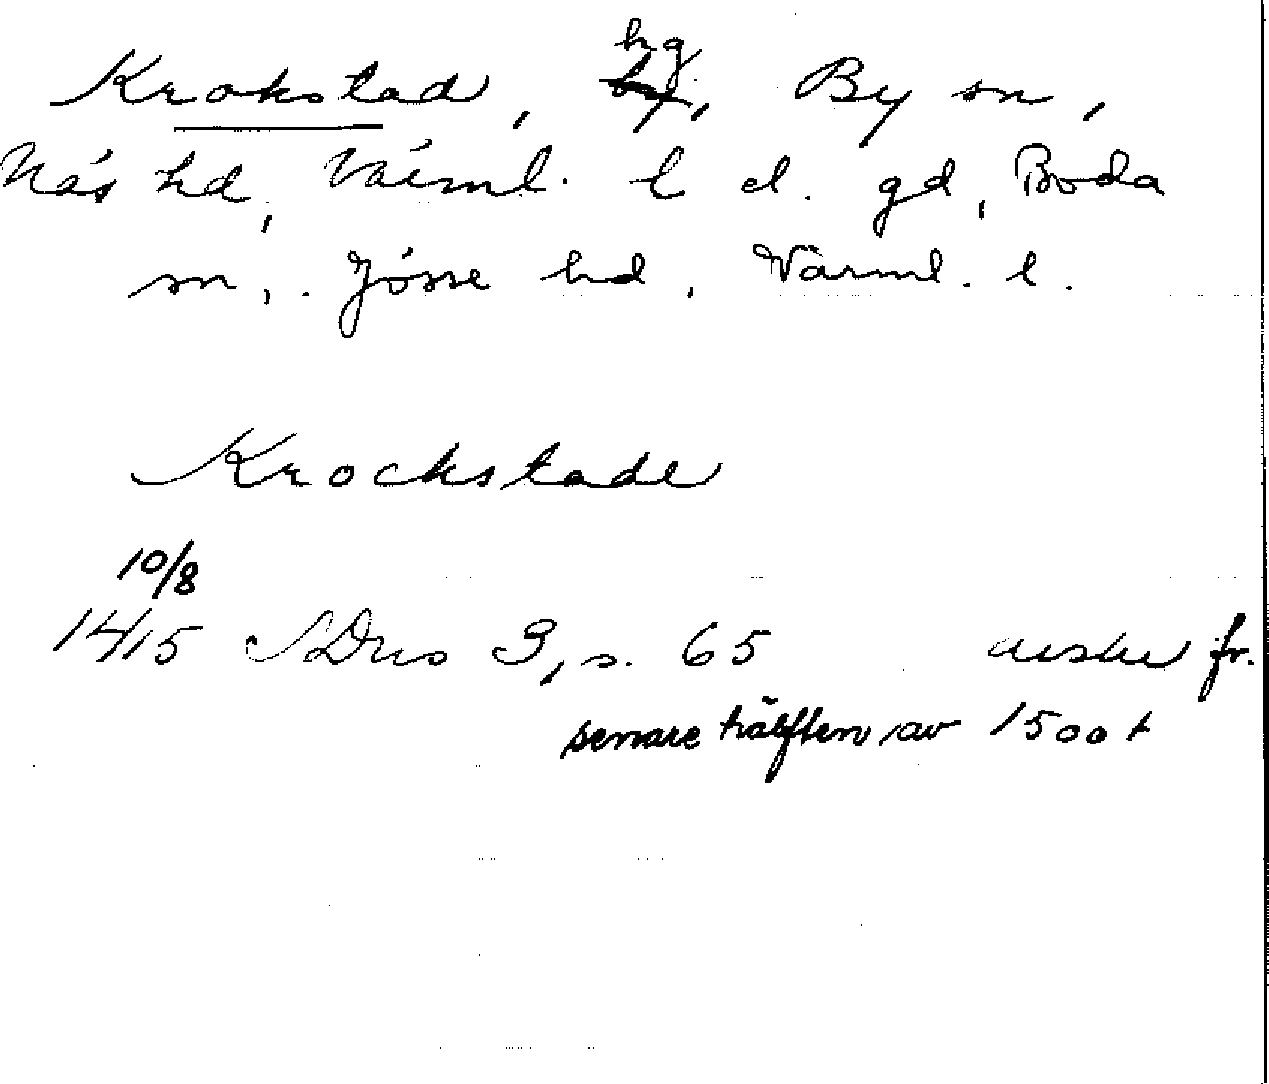 Krokstad, hg, By sn,
Näs hd, Värml. l d. gd, Boda
sn, Jösse hd, Värml. l.
Krockstade
10/8
1415 SDns 3, s. 65 avskr fr.
senare hälften av 1500 t